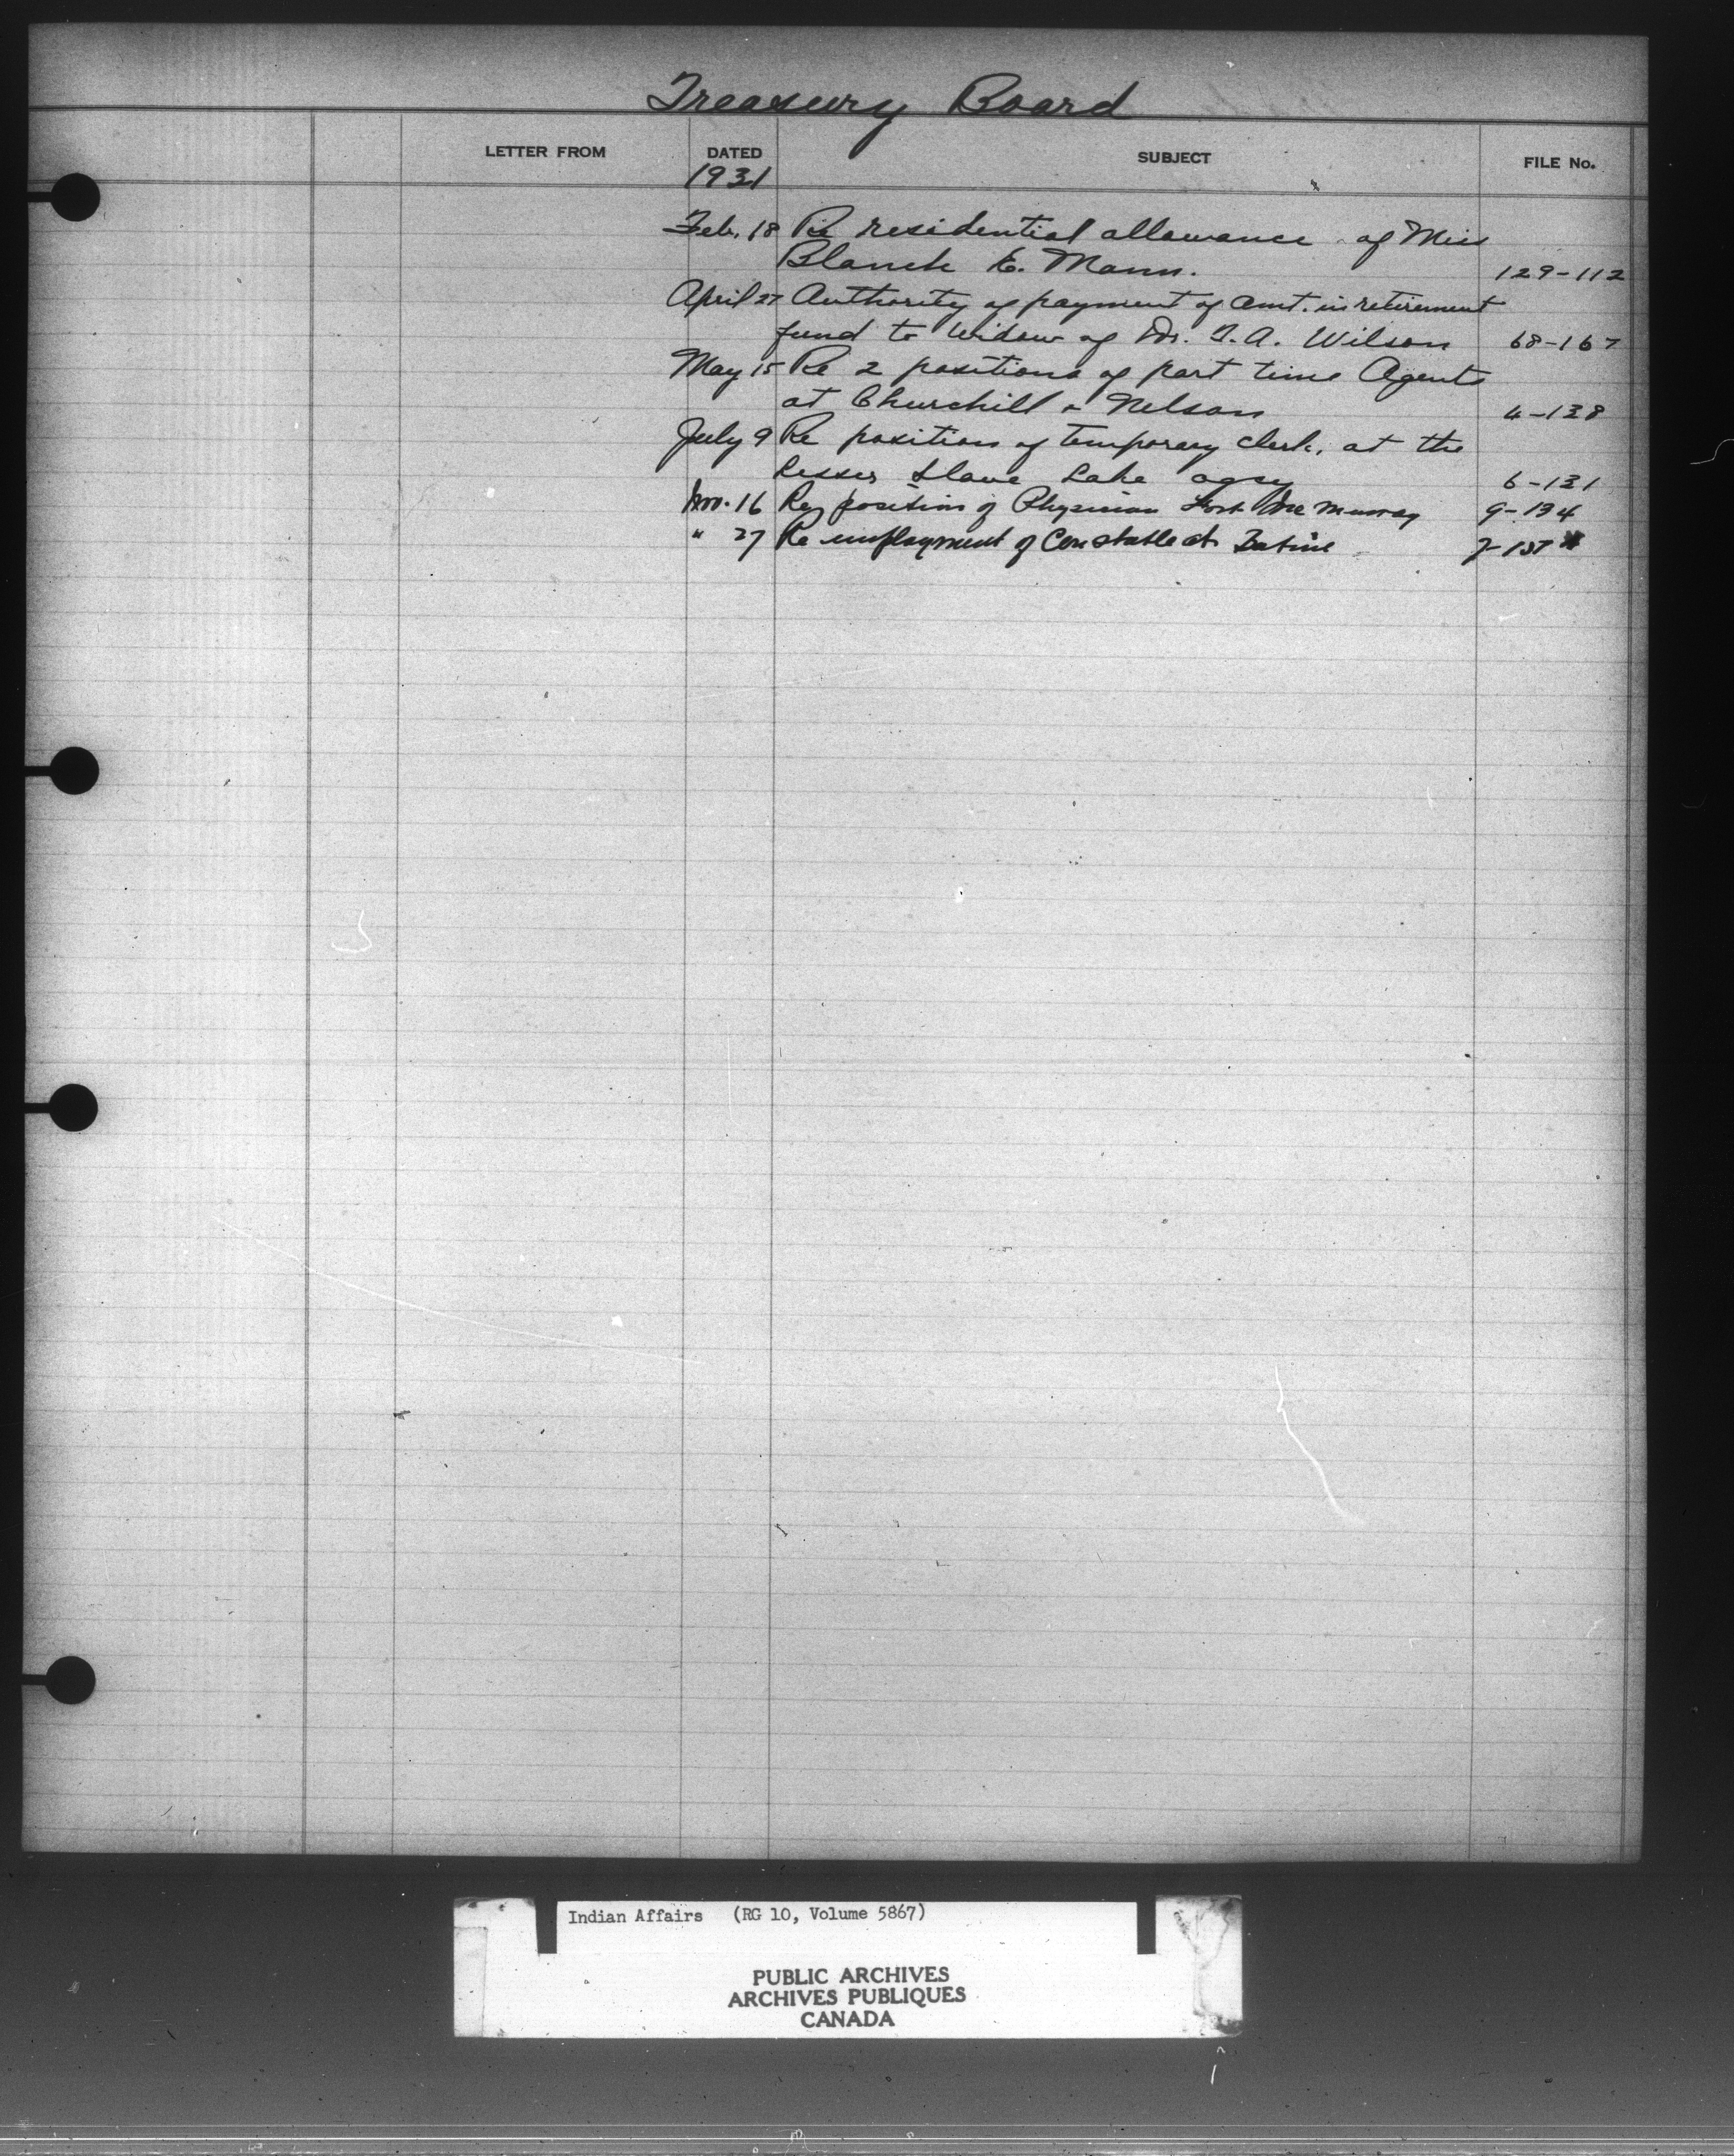 Treasury Board
LETTER FROM DATED SUBJECT FILE No.
1931
Feb. 18 Re residential allowance of Miss
Blanch E. Mann. 129-112
April 27 Authority of payment of amt. in retirement
fund to widow of Dr. T.A. Wilson 68-167
May 15 Re 2 positions of part time Agents
at Churchill & Nelson 4-138
July 9 Re position of temporary clerk, at the
Lesser Slave Lake agcy 6-131
Nov. 16 Re position of Physician Fort McMurray 9-134
" 27 Re employment of Constable at
Indian Affairs (RG 10, Volume 5867)
PUBLIC ARCHIVES
ARCHIVES PUBLIQUES
CANADA